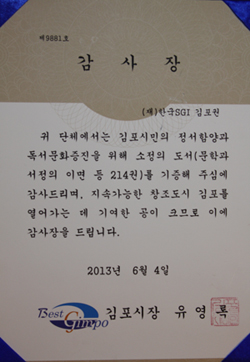 제9881호
감 사 장
(재)한국SGI 김포권
귀 단체에서는 김포시민의 정서함양과
독서문화증진을 위해 소정의 도서(문학과
서정의 이면 등 214권)를 기증해 주심에
감사드리며, 지속가능한 창조도시 김포를
열어가는 데 기여한 공이 크므로 이에
감사장을 드립니다.
2013년 6월 4일
Best Gimpo
김포시장 유영록